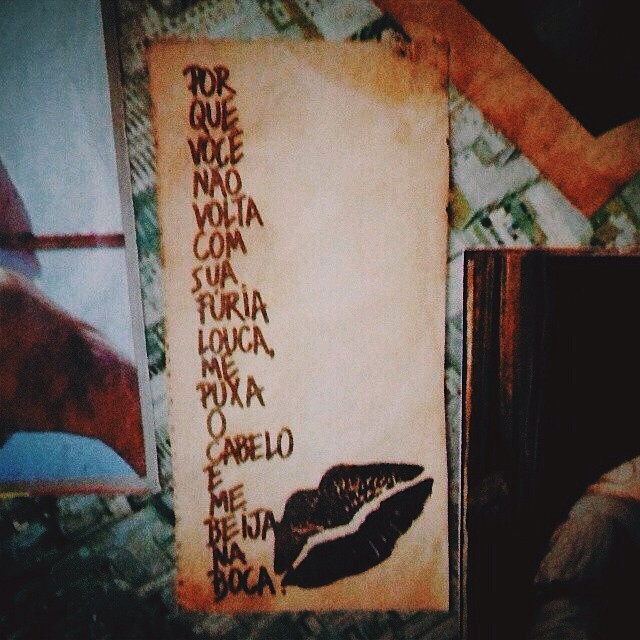 POR
QUE
VOCÊ
NÃO
VOLTA
COM
SUA
FÚRIA
LOUCA,
ME
PUXA
O
CABELO
E
ME
BEIJA
NA
BOCA?